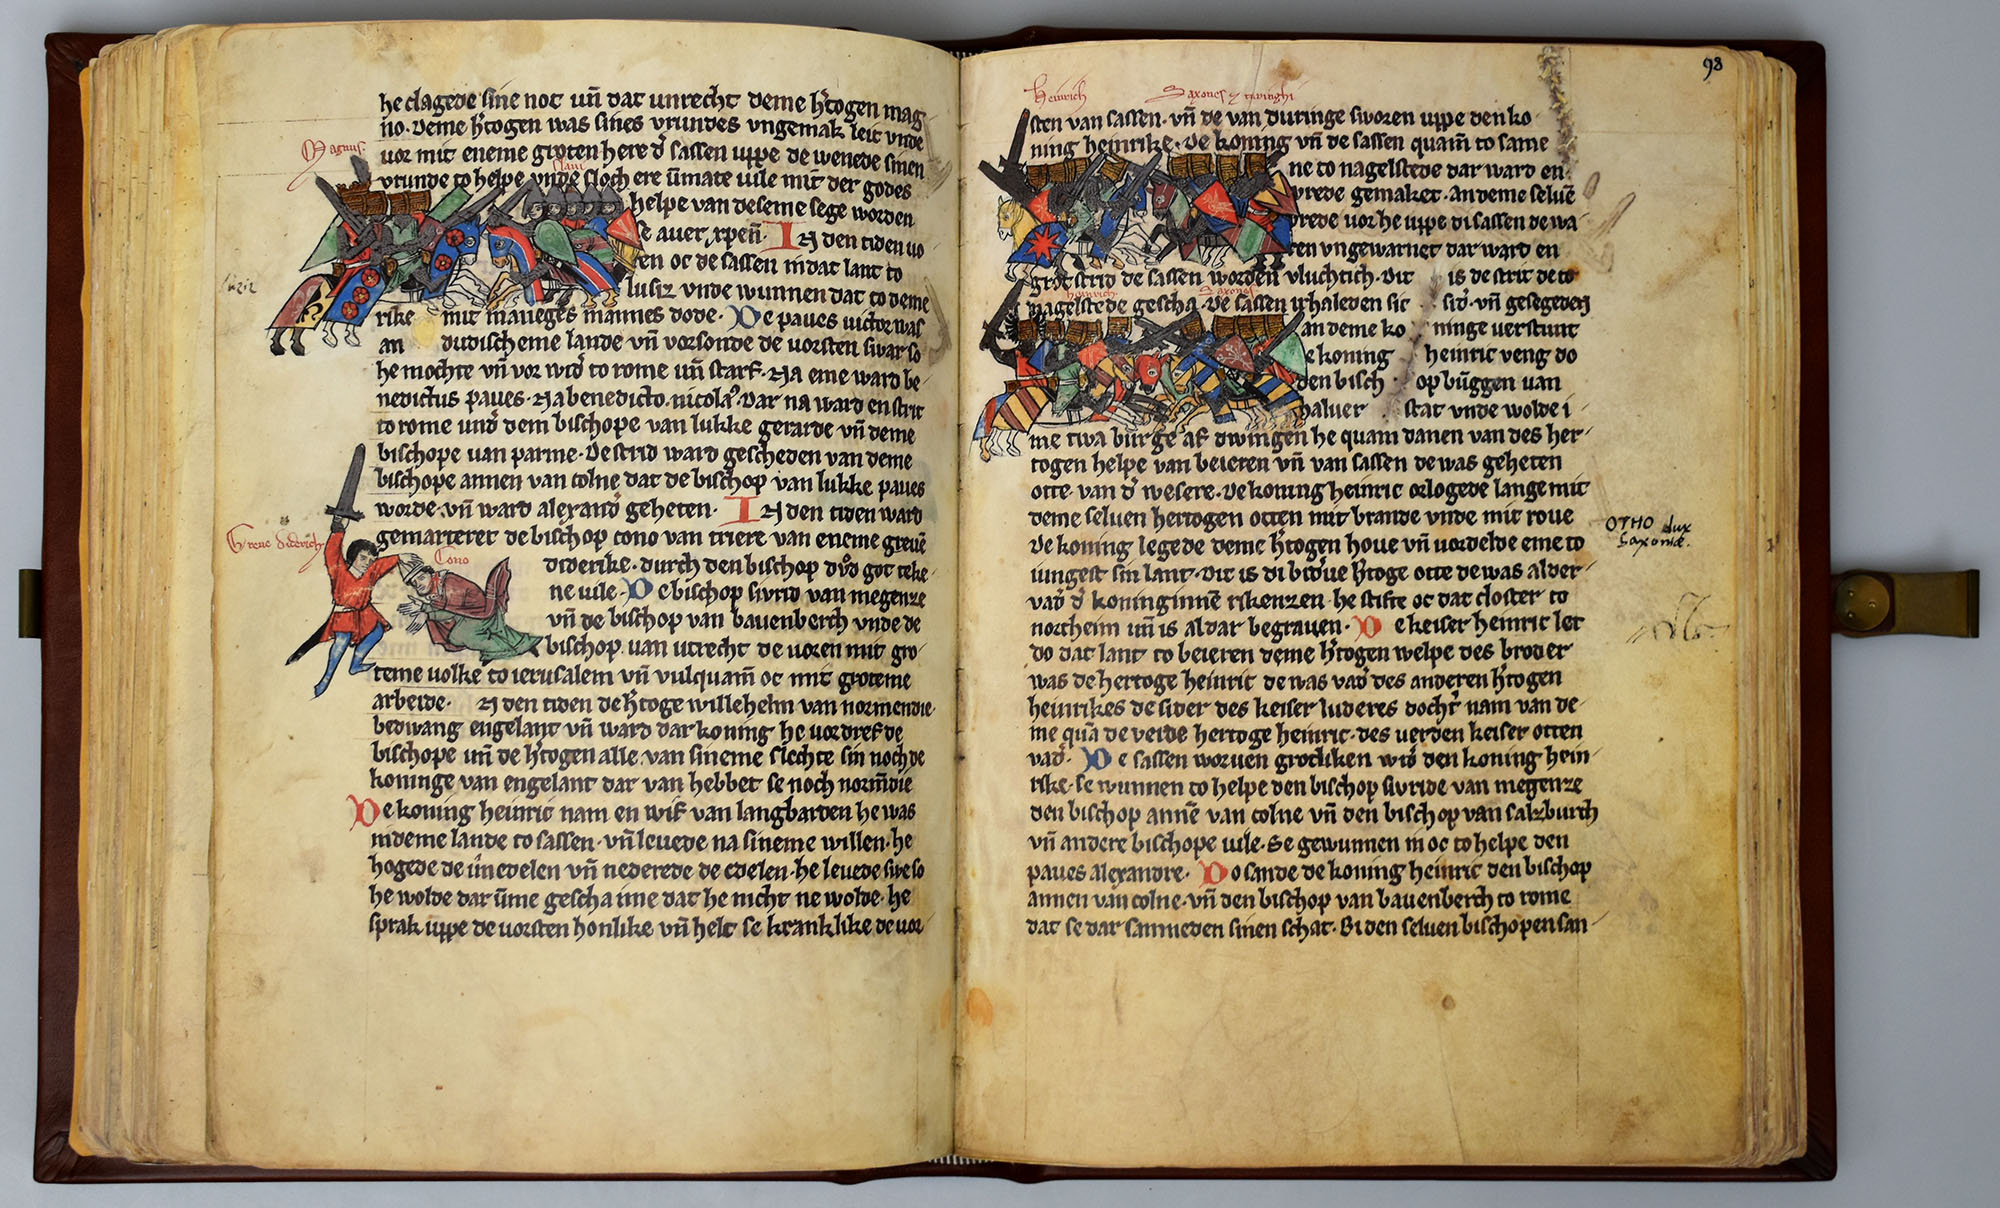 he clagede sine not vn̄ dat unrecht deme h'togen mag
no. Deme h'togen was sines vrundes vngemak leit vnde
Magnus.
uor mit eneme groten here d' sassen uppe de wenede sinen
Slaui
vrunde to helpe vnde sloch ere v̄mate uile mit der godes
helpe van deseme sege worden
se auer xpen̄. IN den tiden uo
ren oc de sassen in dat lant to
lusiz vnde wunnen dat to deme
rike mit maneges mannes dode. De paues uictor was
an dudischeme lande vn̄ vorsonde de uorsten swar so
he mochte vn̄ vor wid' to rome vn̄ starf. Na eme ward be-
nedictus paues. Na benedicto. nicola9. Dar na ward en strit
to rome und' dem bischope van lukke gerarde vn̄ deme
bischope uan parme. De strid ward gescheden van deme
bischope annen van colne dat de bischop van lukke paues
worde. vn̄ ward alexand' geheten. IN den tiden ward
gemarteret de bischop cono van triere van eneme greuē
Greue diderich
Cono
diderike. durch den bischop důd got teke-
ne uile. De bischop siurid van megenze
vn̄ de bischop van bauenberch vnde de
bischop uan utrecht de uoren mit gro-
teme uolke to ierusalem vn̄ vulquam̄ oc mit groteme
arbeide. N den tiden de h'toge willehelm van normendie
bedwang engelant vn̄ ward dar koning he uordref de
bischope vn̄ de h'togen alle van sineme slechte sin noch de
koninge van engelant dar van hebbet se noch norm̄die
De koning heinric nam en wif van langbarden he was
in deme lande to sassen. vn̄ leuede na sineme willen. he
hogede de ūnedelen vn̄ nederede de edelen. he leuede swe so
he wolde dar ūme gescha ime dat he nicht ne wolde. he
sprak uppe de uorsten honlike vn̄ helt se kranklike de uor
98
Heinrich
Saxones &
sten van sassen. vn̄ de van duringe sworen uppe den ko
ning heinrike. De koning vn̄ de sassen quam̄ to same
ne to nagelstede dar ward en
vrede gemaket. An deme seluē
vrede uor he uppe di sassen de wa
ren vngewarnet dar ward en
grot strid de sassen worden vluchtich. Dit is de strit de to
heinrich. Saxones
nagelstede gescha. De sassen irhaleden sic sid'. vn̄ gesegeden
an deme ko ninge uerstunt
e koning heinric veng do
den bisch op būggen uan
haluer stat vnde wolde i
me twa burge af dwingen he quam danen van des her-
togen helpe van beieren vn̄ van sassen de was geheten
otte. van d' wesere. De koning heinric orlogede lange mit
deme seluen hertogen otten mit brande vnde mit roue
OTHO dux
Saxoniæ.
De koning legede deme h'togen houe vn̄ uordelde eme to
iungest sin lant. Dit is di bid'ue h'toge otte de was alder-
vad' d' koninginnē rikenzen. he stifte oc dat closter to
northeim vn̄ is aldar begrauen. De keiser heinric let
do dat lant to beieren deme h'togen welpe des broder
was de hertoge heinric de was vad' des anderen h'togen
heinrikes de sider des keiser luderes docht' nam van de-
me quā de verde hertoge heinric. des uerden keiser otten
vad'. De sassen woruen grotliken wid' den koning hein-
rike. se wunnen to helpe den bischop siuride van megenze
den bischop annē van colne vn̄ den bischop van salzburch
vn̄ andere bischope uile. Se gewunnen in oc to helpe den
paues alexandre. Do sande de koning heinric den bischop
annen van colne. vn̄ den bischop van bauenberch to rome
dat se dar samneden sinen schat. Bi den seluen bischopen san-